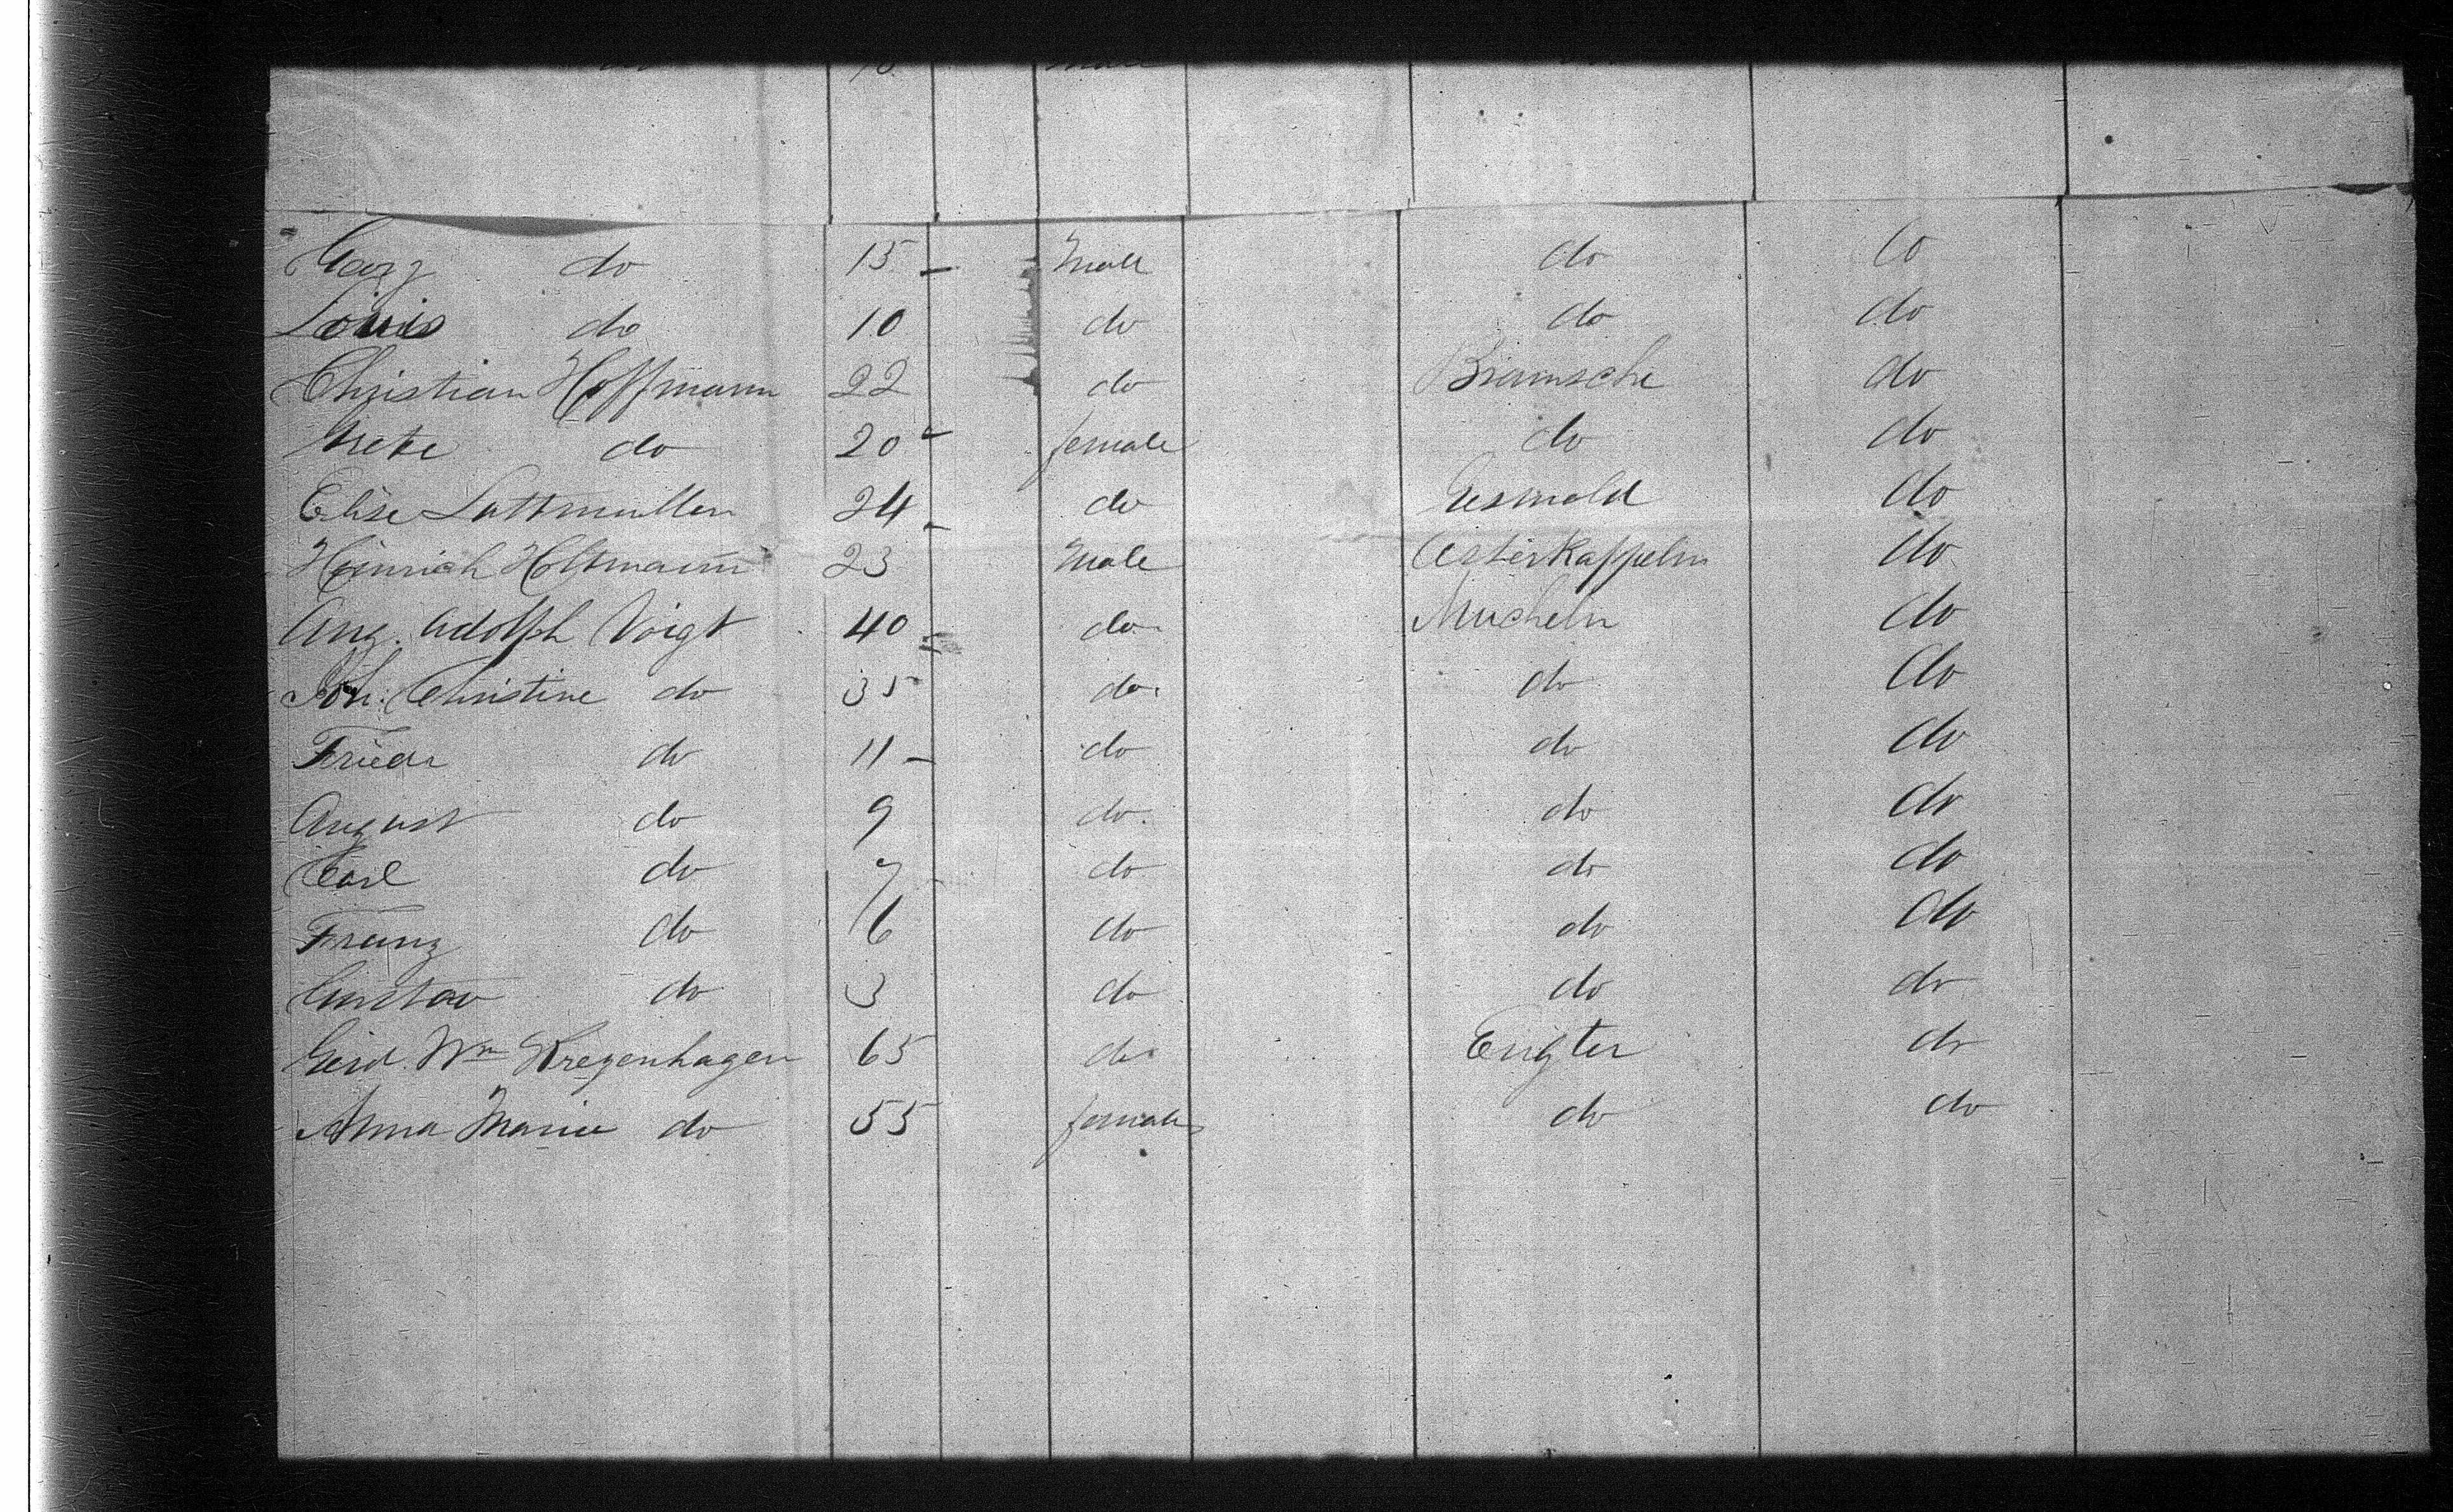 do 15 male do do
Louis do 10 do do do
Christian Hoffmann 22 do Bramsche do
Grete do 20 female do do
Elise Luttmullen 24 do Gesmold do
Heinrich Holtmann 23 Male Osterkappeln do
Aug. Adolph Voigt 40 do Mucheln do
Joh. Christine do 35 do do do
Friedr do 11 do do do
August do 9 do do do
Carl do 7 do do do
Franz do 6 do do do
Gustav do 3 do do do
Gerd. Wm Kregenhagen 65 do Engter do
Anna Marie do 55 female do do